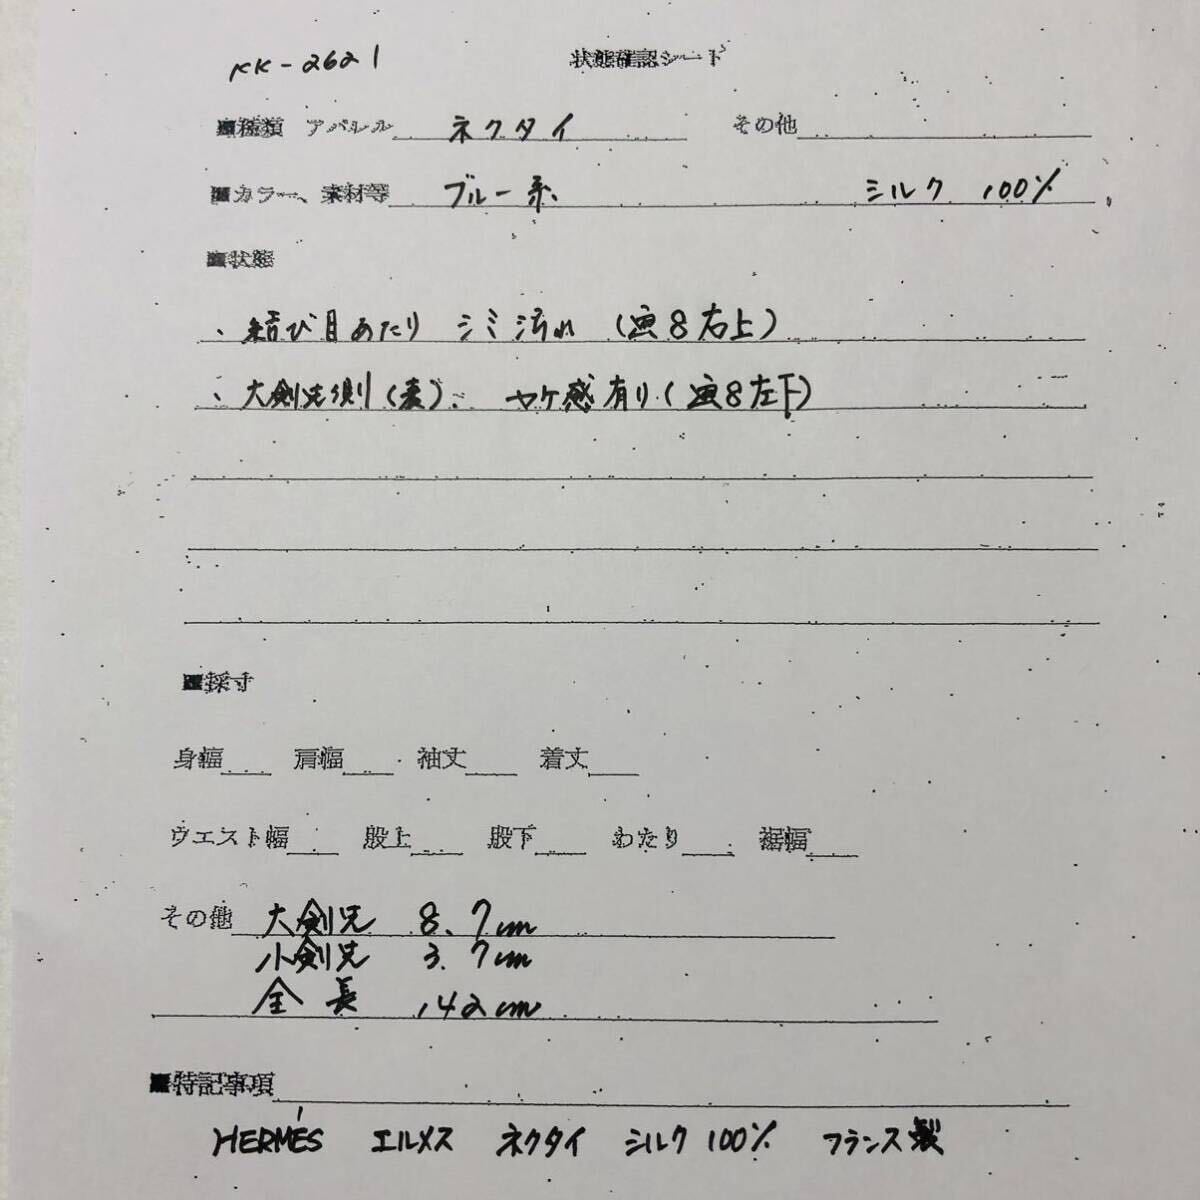 KK-2621 状態確認シート
■種類 アパレル ネクタイ その他
■カラー、素材等 ブルー系 シルク 100%
■状態
、結び目あたり シミ汚れ (画8右上)
、大剣先側(表)、ヤケ感有り(画8左下)
■採寸
身幅 肩幅 袖丈 着丈
ウエスト幅 股上 股下 わたり 裾幅
その他 大剣先 8.7cm
小剣先 3.7cm
全長 142cm
■特記事項
HERMÉS エルメス ネクタイ シルク100% フランス製